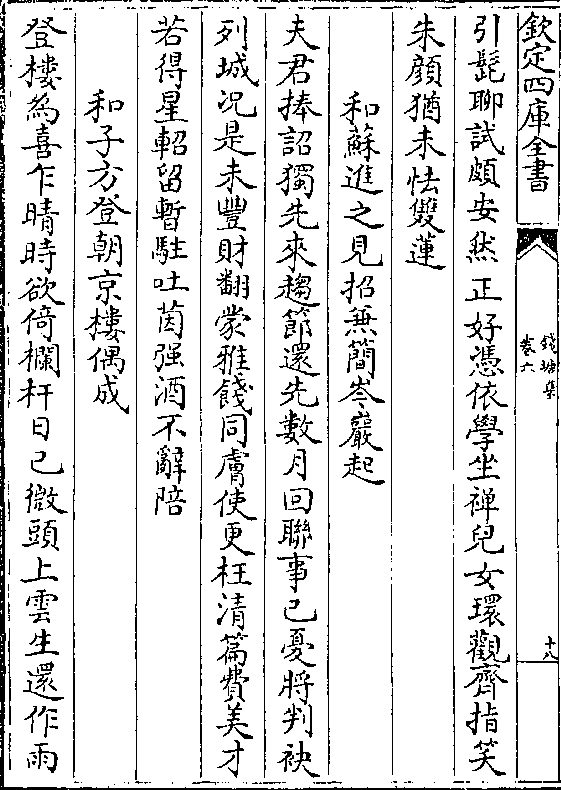 欽定四庫全書
錢塘集
卷六
十八
引髭聊試頗安然正好憑依學坐禅兒女環觀齊指笑
朱顔猶未怯雙蓮
和蘇進之見招兼簡岑巖起
夫君捧詔獨先來趨節還先數月回聯事已憂將判袂
列城况是未豐財翻蒙雅餞同膚使更枉清篇費美才
若得星軺留暫駐吐茵强酒不辭陪
和子方登朝京樓偶成
登樓為喜乍晴時欲倚欄杆日已微頭上雲生還作雨